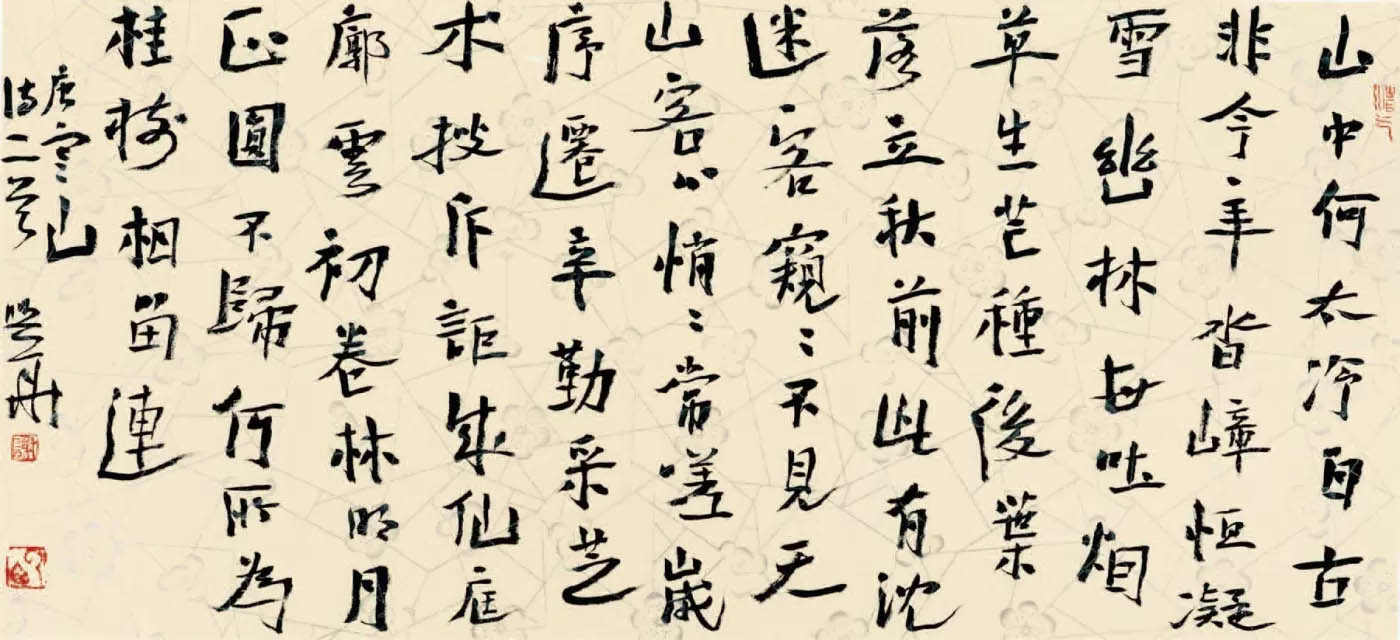 山中何太冷自古
非今年沓嶂恒凝
雪幽林每吐烟
草生芒種後葉
落立秋前此有沈
迷客窺〻不見天
山客心悄〻常嗟歲
序遷辛勤采芝
术搜斥詎成仙庭
廓雲初卷林明月
正圓不歸何所為
桂樹相留連
唐寒山
詩二首